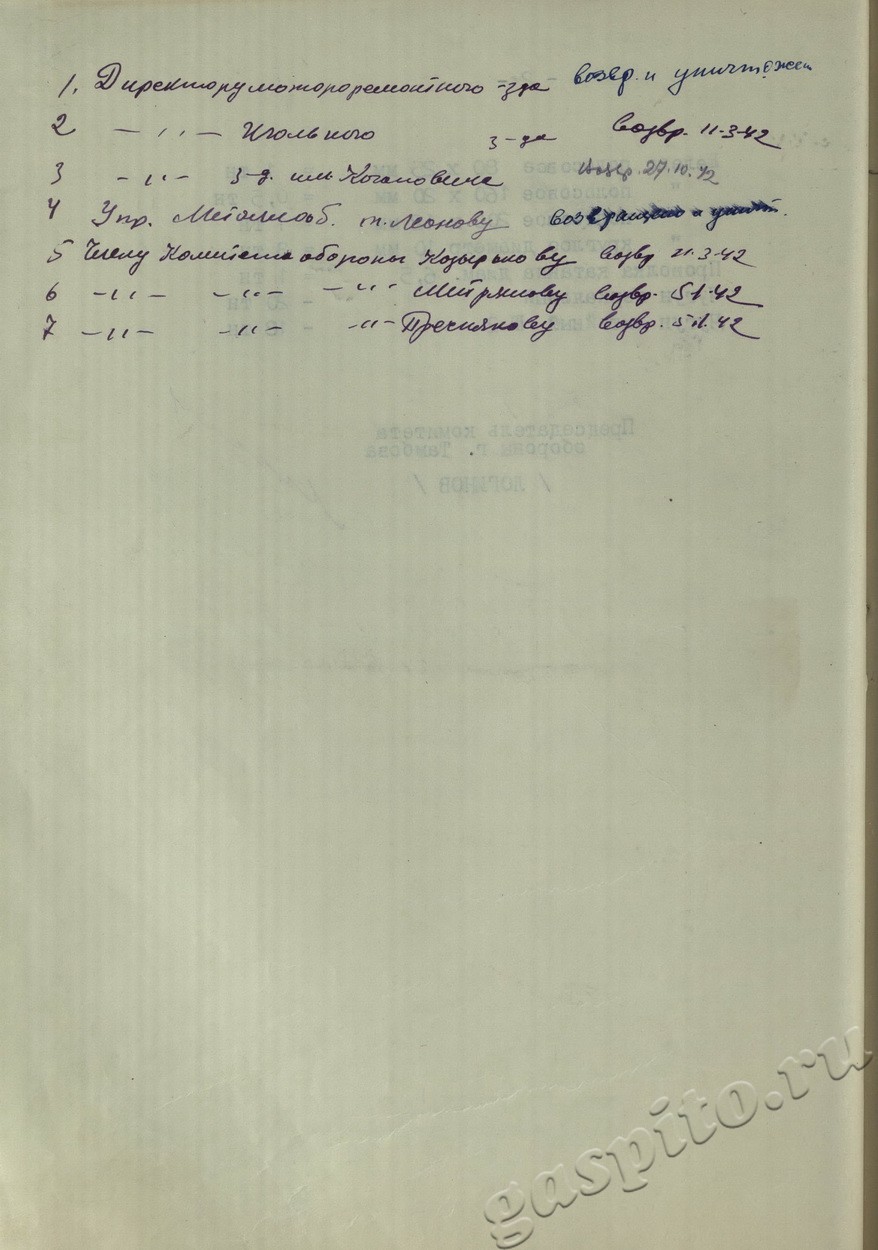 1. Директору мотороремонтного з-да возвр. и уничтожен
2 — " — Игольного з-да возвр. 11-3-42
3 — " — з-д. им Кагановича возвр. 27.10.42
4 Упр. Металлосб. т. Леонову возвращено и уничт.
5 Члену Комитета обороны Козырькову возвр 11-3-42
6 — " — — " — — " — Митрякову возвр. 5-1-42
7 — " — — " — — " — Преснякову возвр. 5-1-42
Председатель комитета
обороны г. Тамбова
/ ЛОГИНОВ /
gaspito.ru